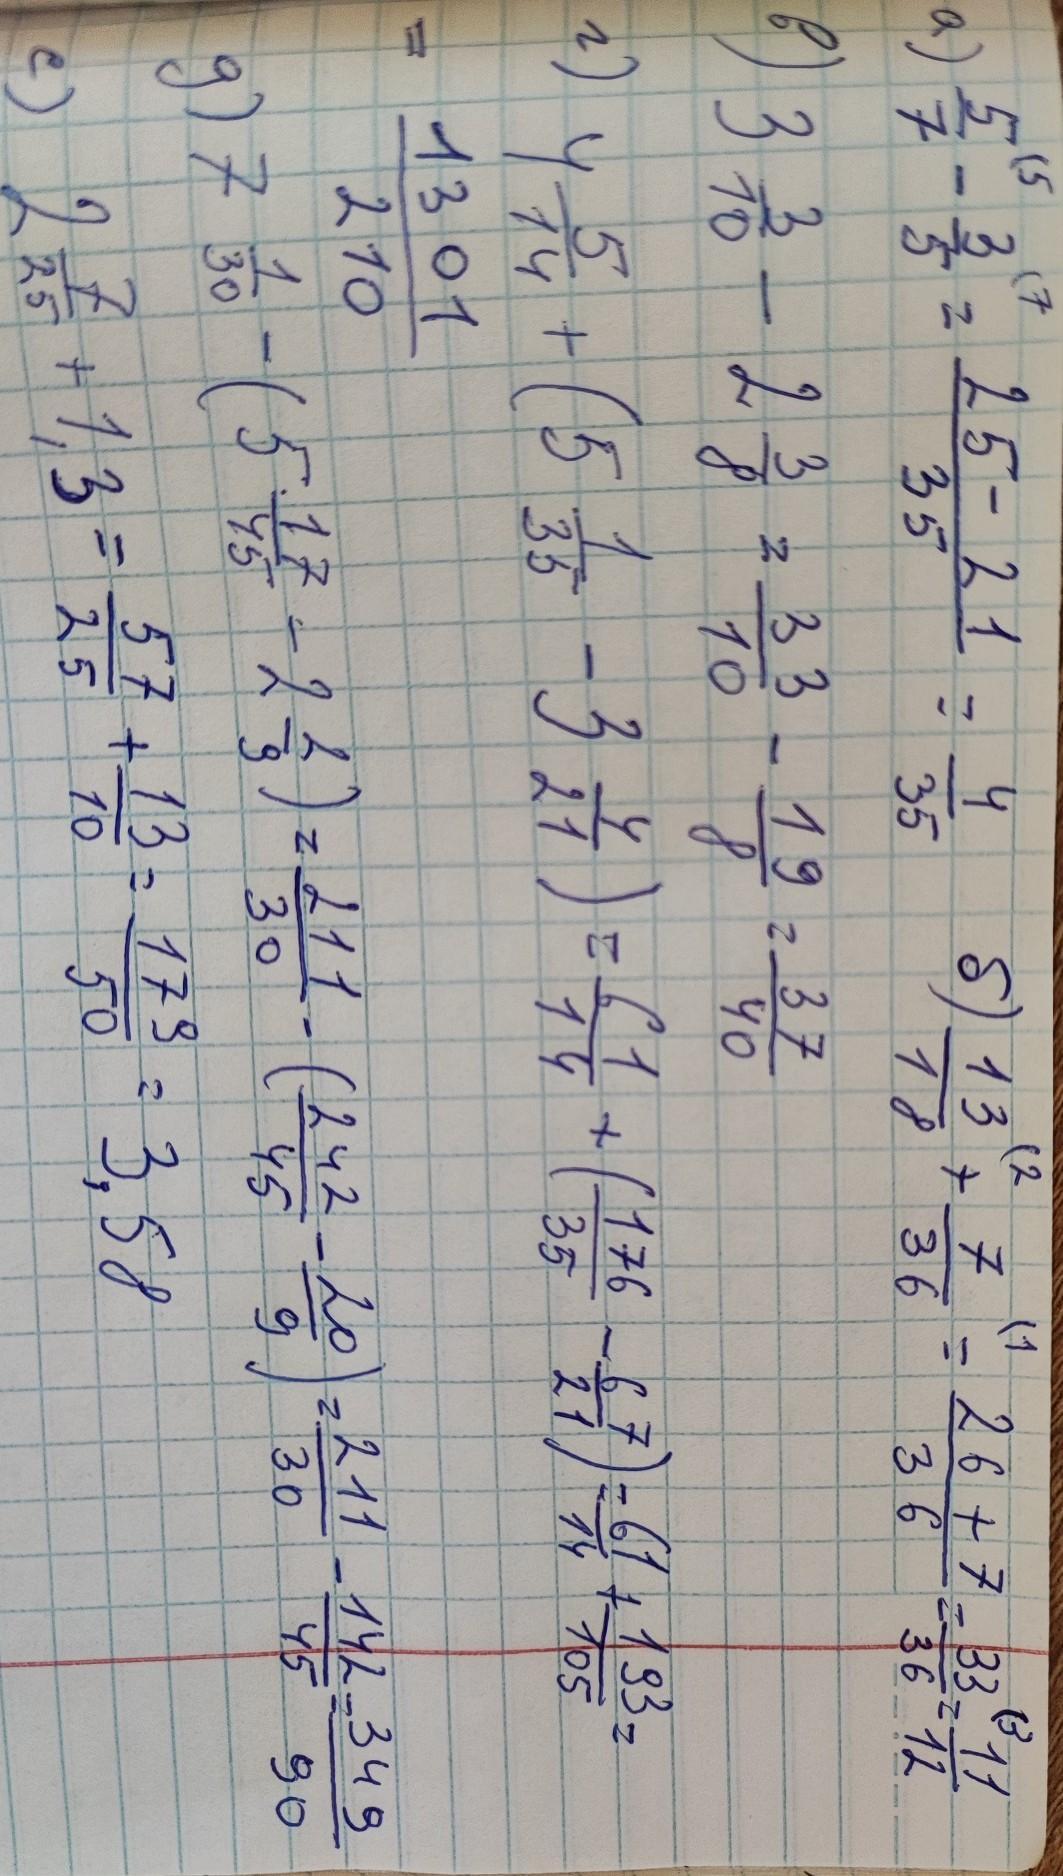 а) 5/7 (5 - 3/5 (7 = 25-21/35 = 4/35 б) 13/18 (2 + 7/36 (1 = 26+7/36 = 33/36 (3 = 11/12
в) 3 3/10 - 2 3/8 = 33/10 - 19/8 = 37/40
г) 4 5/14 + (5 1/35 - 3 4/21) = 61/14 + (176/35 - 67/21) = 61/14 + 193/105 =
= 1301/210
д) 7 1/30 - (5 17/45 - 2 2/9) = 211/30 - (242/45 - 20/9) = 211/30 - 142/45 = 349/90
е) 2 7/25 + 1,3 = 57/25 + 13/10 = 179/50 = 3,58